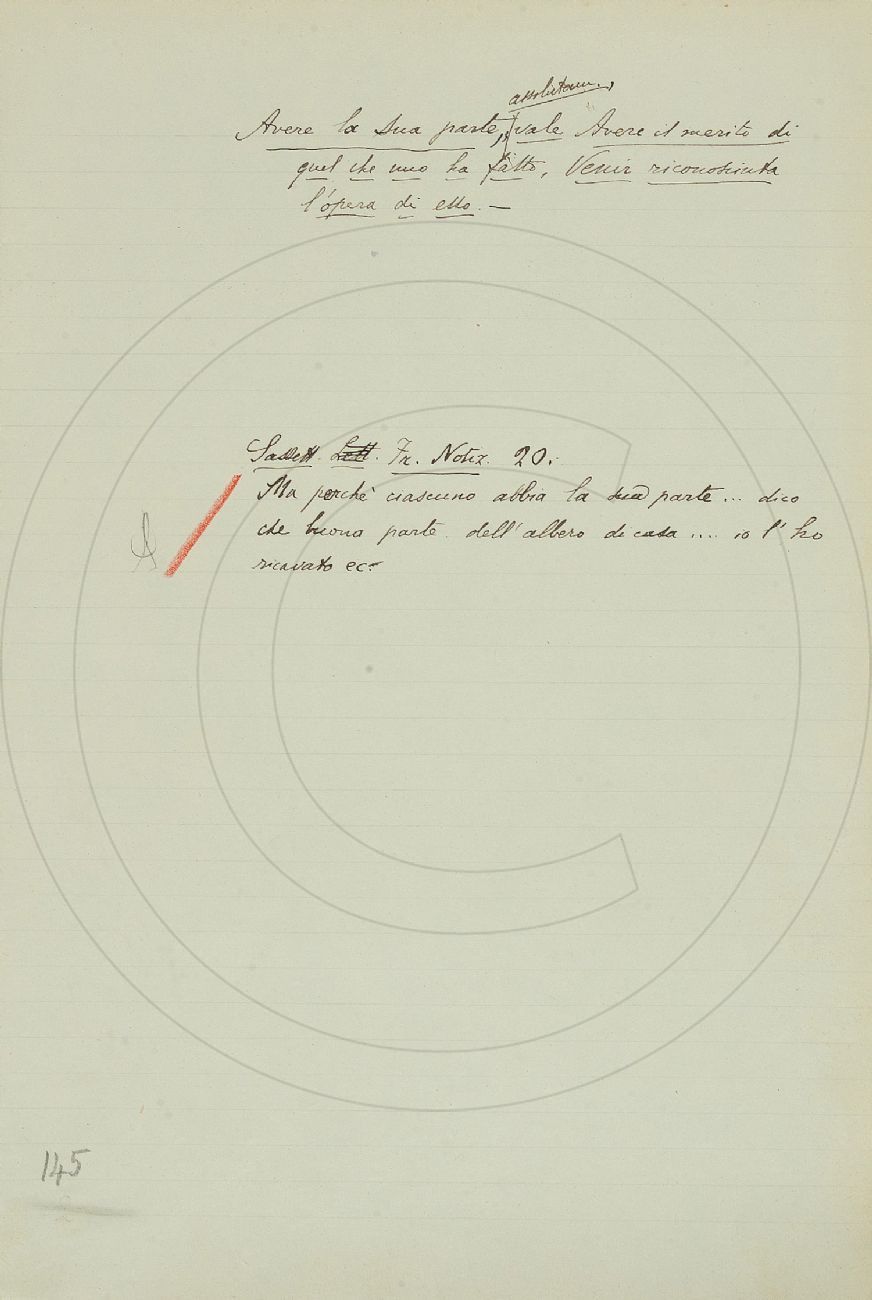 assolutam.,
Avere la sua parte, vale Avere il merito di
quel che uno ha fatto, Venir riconosciuta
l'opera di esso. —
Sassett. Lett. Fr. Notiz. 20.
Ma perchè ciascuno abbia la sua parte ... dico
che buona parte dell'albero di casa .... io l'ho
ricavato ec.
145